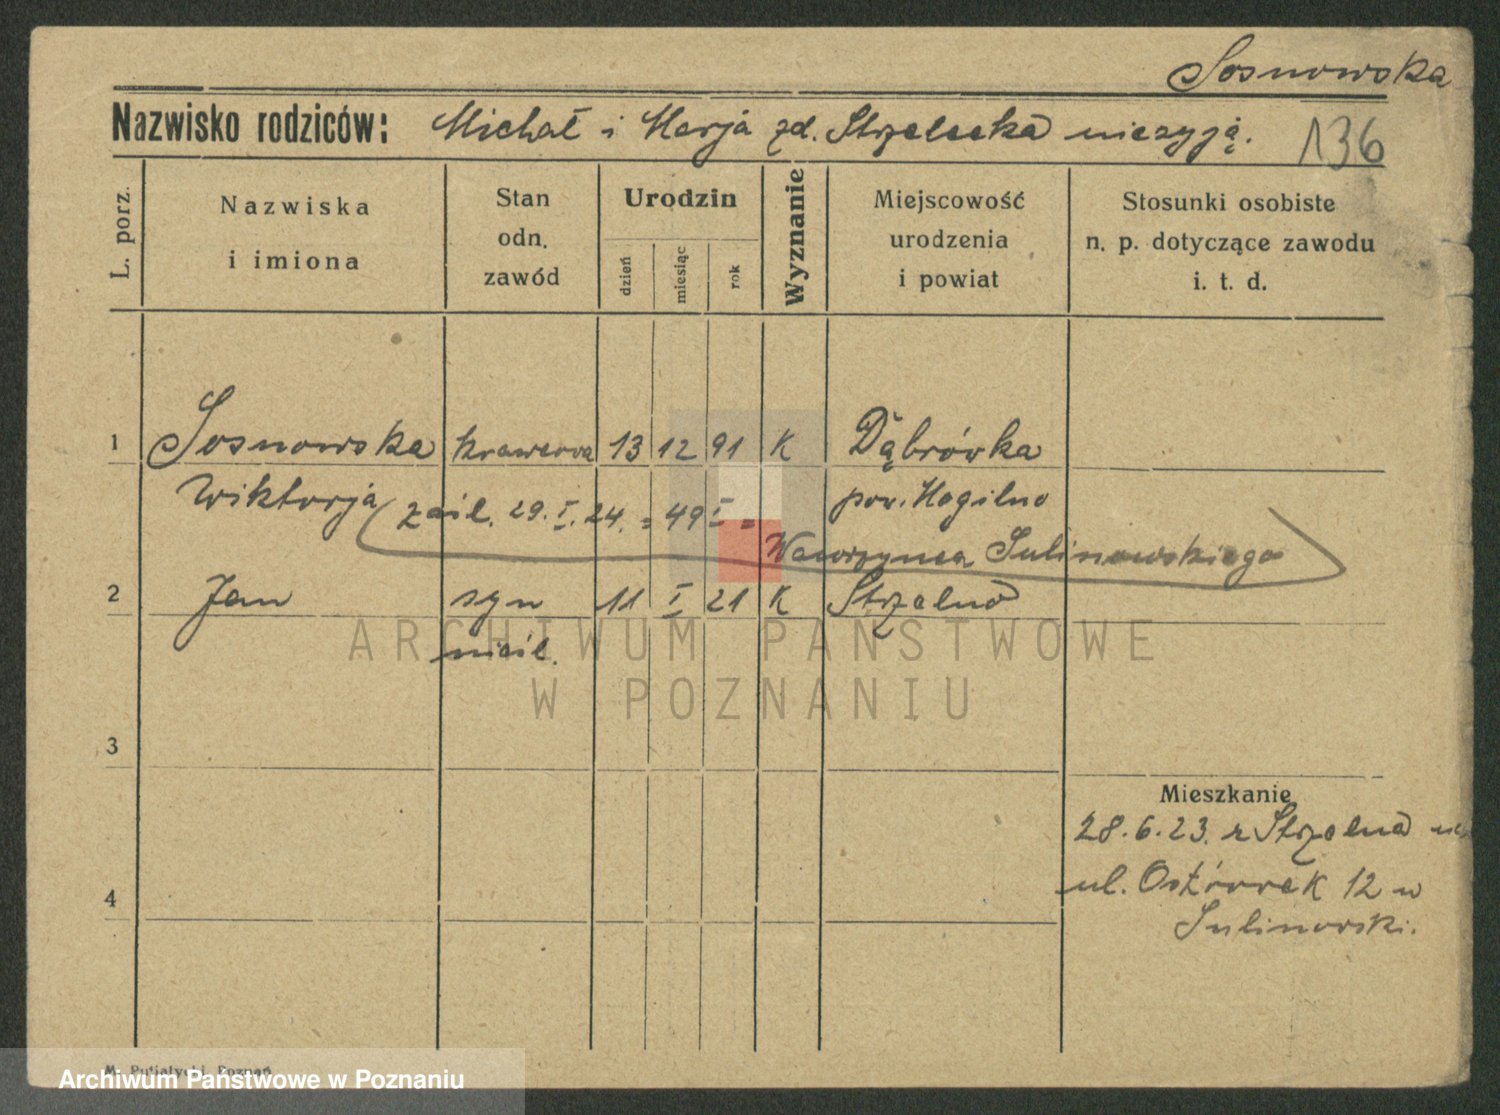 Sosnowska
Nazwisko rodziców: Michał i Marja zd. Strzelecka nieżyją.
136
L. porz.
Nazwiska i imiona
Stan odn. zawód
Urodzin
dzień miesiąc rok
Wyznanie
Miejscowość urodzenia i powiat
Stosunki osobiste n. p. dotyczące zawodu i. t. d.
1 Sosnowska krawcowa 13 12 91 K Dąbrówka
Wiktorja zaśl. 29. I. 24. = 49 I = pow. Mogilno
Wawrzynca Sulinowskiego
2 Jan syn 11 I 21 K Strzelno
nieśl.
ARCHIWUM PAŃSTWOWE
W POZNANIU
3
Mieszkanie
28.6.23. z Strzelna
ul. Ostrówek 12 u
4
Sulinowski.
M. Putiatycki, Poznań
Archiwum Państwowe w Poznaniu